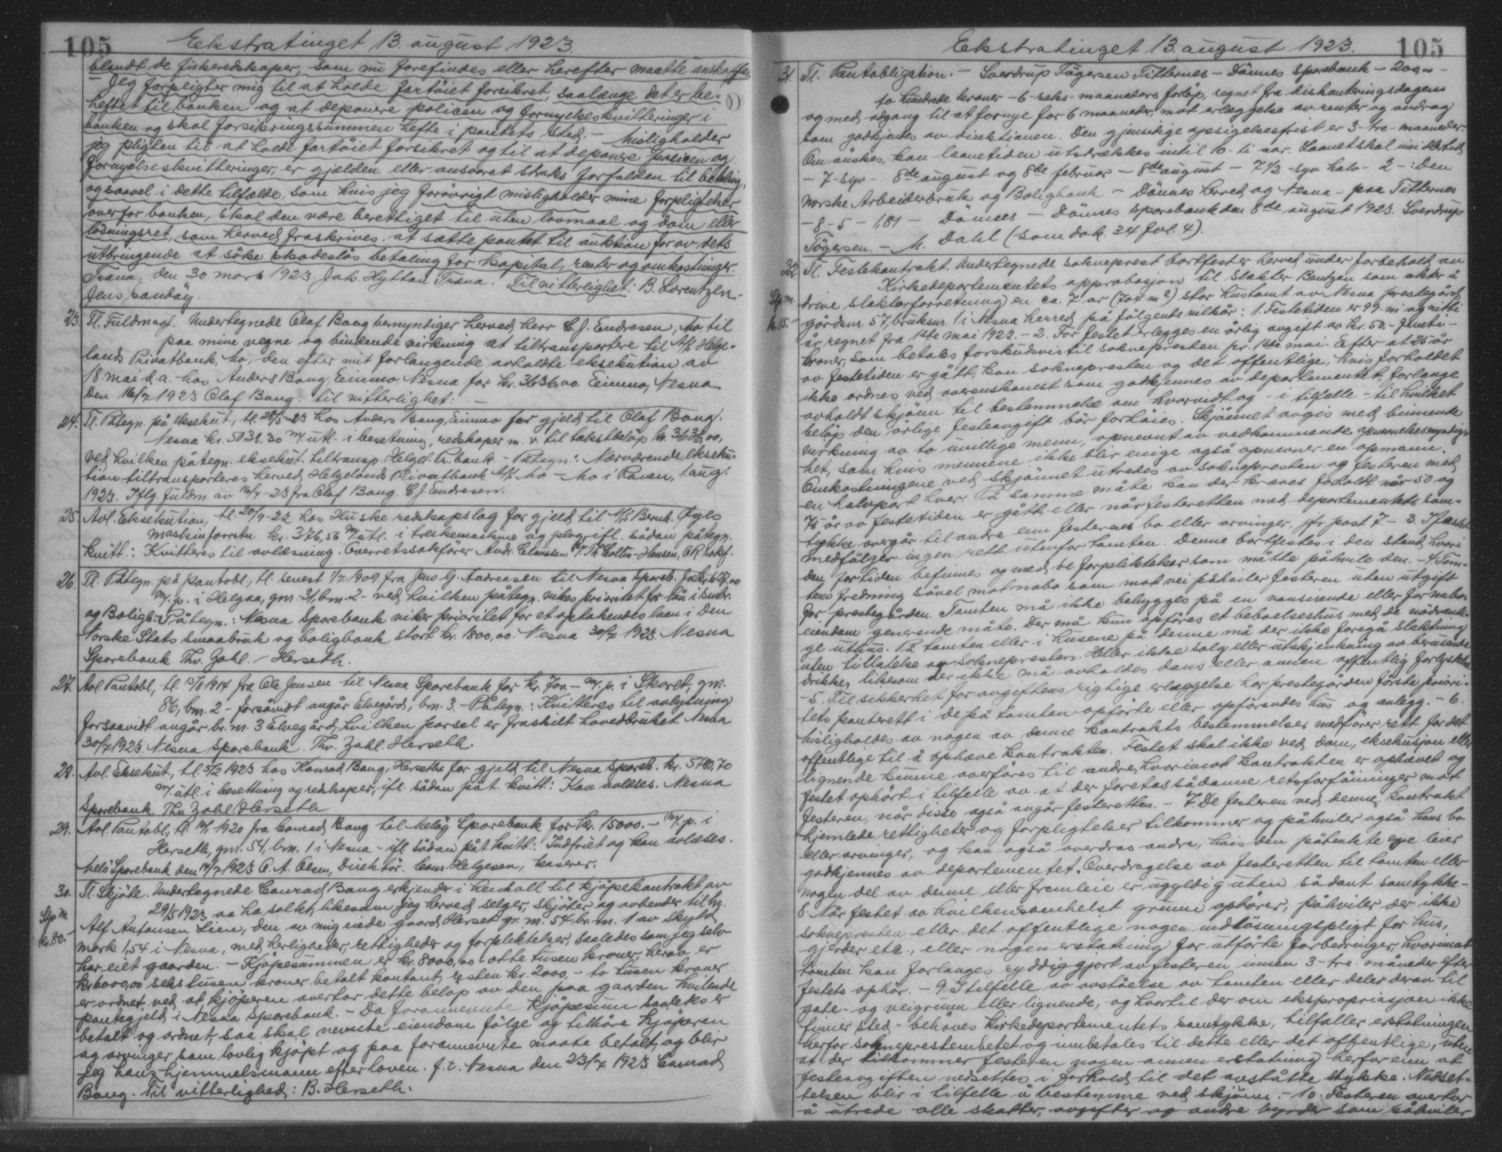 105
Ekstratinget 13. august 1923
blandt de fiskeredskaper, som nu forefindes eller herefter maatte anskaffes
- Jeg forpligter mig til at holde fartöiet forsikret, saalænge det er be-
heftet til banken og at deponere policen og fornyelseskvitteringer i
banken og skal forsikringssummen hefte i pantets sted. - Misligholder
jeg pligten til at holde fartöiet forsikret og til at deponere policen og
fornyelseskvitteringer, er gjelden eller ansvaret straks forfalden til betaling,
og saavel i dette tilfælde, som hvis jeg forövrigt misligholder mine forpligtelser
overfor banken, skal den være berettiget til uten lovmaal og dom eller
lösningsret, som herved fraskrives, at sætte pantet til auktion for av dets
utbringende at söke skadeslös betaling for kapital, renter og omkostninger.
Træna, den 30 mars 1923. Joh. Hyttan Træna. Til vitterlighet: B. Lorentzen.
Jens Sandöy.
23. Tl. Fuldmagt. Undertegnede Olaf Bang bemyndiger herved herr C.J. Endresen, Mo til
paa mine vegne og bindende virkning at tiltransportere til A/S Helge-
lands Privatbank, Mo, den efter mit forlangende avholdte eksekution av
18 mai d.a. hos Anders Bang Einmo, Nesna for kr. 3636,00. Einmo, Nesna
den 16/7 1923 Olaf Bang. Til vitterlighet: -
24. Tl. Påtegn. på eksekut., tl. 28/5-23 hos Anders Bang, Einmo for gjeld til Olaf Bang.
Nesna kr. 5838.20 m/utl. i besetning, redskaper m.v. til takstbelöp kr. 3636,00,
ved hvilken påtegn. eksekut. tiltransp. Helgel. Pr. bank. - Påtegn.: Nærværende eksekution
tiltransporteres herved Helgelands Privatbank A/S Mo - Mo i Ranen, 1 aug.
1923. Iflg. fuldm. av 16/7-23 fra Olaf Bang C.J. Endresen.
25. Avl. Eksekution, tl. 20/9-22 hos Huske redskapslag for gjeld til A/S Bernh. Öyes
maskinforretn. kr. 376,56 m/utl. i trækemaskine og plog ifl. sådan påtegn.
Kvitt.: Kvitteres til avlæsning. Overretssakförer Andr. Claussen
26. Tl. Påtegn. på pantobl., tl. senest 1/7 1909 fra Jens G. Andreasen til Nesna Spareb.
m/p. i Helgaa, gnr 31, b.nr. 2 - ved hvilken påtegn. vikes prioritet for lån i Småbr.
og Boligb. - Påtegn.: Nesna Sparebank viker prioritet for et optakendes laan i den
Norske Stats smaabruk og boligbank stort kr. 1800,00. Nesna 30/7 1923 Nesna
Sparebank Thv. Zahl / Herseth.
27. Avl. Pantobl., tl. 13/6 1914 fra Ole Jensen til Nesna Sparebank for kr. 700 - m/p. i Skaret, gnr.
86, bnr. 2 - forsåvidt angår Elvegård, bnr. 3. - Påtegn.: Kvitteres til avlysning
forsaavidt angår br.nr. 3 Elvegård, hvilken parsel er fraskilt hovedbruket Nesna
30/7 1923. Nesna Sparebank. Thv. Zahl Herseth.
28. Avl. Eksekut., tl. 5/2 1923 hos Konrad Bang, Herseth for gjeld til Nesna Spareb. kr. 570,70
m/utl. i besetning og redskaper, ifl. sådan påt. kvitt.: Kan avlæses. Nesna
Sparebank Thv. Zahl / Herseth
29. Avl. Pantobl., tl. 1920 fra Conrad Bang til Melöy Sparebank for kr. 15000. - m/p. i
Herseth, gnr. 54, brn. 1 i Nesna - ifl. sådan påt. kvitt.: Indfriet og kan avlæses.
Melö Sparebank den 14/7 1923 O.A. Olsen, Direktör. Com. Helgesen, kaserer.
30. Tl. Skjöte. Undertegnede Conrad Bang erkjender i henhold til kjöpekontrakt av
Stp.m.
kr. 80.-
29/5 1923 aa ha solgt, likesom jeg herved selger, skjöter og avhender til hr.
Alf Antonsen Lien, den av mig eiede gaard Herset gr.nr. 54 br.nr. 1 av skyld
mark 1,54 i Nesna, med herligheder, rettigheder og forpliktelser, saaledes som jeg selv
har eiet gaarden. - Kjöpesummen er kr. 8000,00 otte tusen kroner, herav er
kr. 6000,00 seks tusen kroner betalt kontant, resten kr. 2000,- to tusen kroner
er ordnet ved at kjöperen overtar dette belöp av den paa gaarden hvilende
pantegjeld i Nesna Sparebank. - Da forannevnte kjöpesum saaledes er
betalt og ordnet, saa skal nevnte eiendom fölge og tilhöre kjöperen
og arvinger som lovlig kjöpt og paa forannevnte maate betalt, og blir
jeg hans hjemmelsmann efter loven. f.t. Nesna den 23/7 1923 Conrad
Bang. Til vitterlighed: B. Herseth.
Ekstratinget 13. august 1923.
105
31. Tl. Pantobligation. - Sverdrup Tögersen Titternes - Dönnes Sparebank - 200,-
to hundrede kroner - 6 - seks - maaneders forløp, regnet fra diskonteringsdagen
og med adgang til at fornye for 6 maaneder, mot erleggelse av renter og avdrag
som godkjendes av direktionen. Den gjensidige opsigelsesfrist er 3 - tre - maaneder.
Om önskes, kan laanetiden utstrækkes intil 10 - ti aar. Laanet skal
- 7 - syv - 8de august og 8de februar - 8de august - 7 1/2 - syv halv - 2 - : Den
Norske Arbeiderbruk og Boligbank - Dönnes herred og Nesna - paa Titternes
- 8 - 5 - 1,81 - Dönnes - Dönnes Sparebank den 8de august 1923. Sverdrup
Tögersen. - M. Dahl (som dok 24 fol. 4).
32. Tl. Festekontrakt. Undertegnede sokneprest bortfester herved under forbehold av
Stp.m.
kr. 15.-
Kirkedepartementets approbasjon til slakter Bentzen som akter å
drive slakterforretning en ca. 7 ar (700 m²) stor hustomt av Nesna prestegård,
gårdsnr. 57, bruksnr. 1 i Nesna herred på fölgende vilkår: 1. Festetiden er 99 - nitti
år, regnet fra 1ste mai 1922. - 2. For festet erlegges en årlig avgift av kr. 50 - femti -
kroner, som betales forskudsvis til soknepresten pr. 1ste mai. Efter at 25 år
av festetiden er gått, kan soknepresten og det offentlige, hvis forholdet
ikke ordnes ved overenskomst som godkjennes av departementet, forlange
avholdt skjönn til bestemmelse om hvorvidt og - i tilfelle - til hvilket
belöp den årlige festeavgift bör forhöies. Skjönnet avgis med bindende
virkning av to uvillige menn, opnevnt av vedkommende opnevnelsesmyndig-
het, som hvis mennene ikke blir enige også opnevner en opmann.
Omkostningene ved skjönnet utredes av soknepresten og festeren med
en halvpart hver. På samme måte kan der kreves forhold når 50 og
75 år av festetiden er gått eller når festeretten med departementets sam-
tykke overgår til andre enn festerens bo eller arvinger, jfr. post 7 - 3. Med festet
medfölger ingen rett utenfor tomten. Denne bortfestes i den stand, hvori
den for tiden befinnes og med de forpliktelser som måtte påhvile den. - 4. Tom-
tens fredning såvel mot nabo som mot vei påhviler festeren uten utgift
for prestegården. Tomten må ikke bebygges på en vansirende eller for nabo-
eiendom generende måte. Der må kun opföres et beboelseshus med de nödvendi-
ge uthus. På tomten eller i husene på denne må der ikke foregå slaktning
uten tillatelse av soknepresten. Heller ikke salg eller utskjenkning av berusende
drikker, likesom der ikke må avholdes dans eller annen offentlig forlystelse.
- 5. Til sikkerhet for avgiftens rigtige erlæggelse har prestegården förste priori-
tets panterett i de på tomten opförte eller opförendes hus og anlegg. - 6.
Misligholdes av nogen av denne kontrakts bestemmelser medförer rett for det
offentlige til å ophæve kontrakten. Festet skal ikke ved dom, eksekusjon eller
lignende kunne overföres til andre, hvorimot kontrakten er ophævet og
festet ophört i tilfelle av at der foretas sådanne retsforføininger mot
festeren, når disse også angår festeretten. - 7. De festeren ved denne kontrakt
hjemlede rettigheter og forpligtelser tilkommer og påhviler også hans bo
eller arvinger, og kan også overdras andre, hvis den påtenkte nye leier
godkjennes av departementet. Overdragelse av festeretten til tomten eller
nogen del av denne eller fremleie er ugyldig uten sådant samtykke. -
8. Når festet av hvilkensomhelst grunn ophörer, påhviler der ikke
soknepresten eller det offentlige nogen indlösningspligt for hus,
gjerder etc., eller nogen erstatning for utförte forbedringer, hvorimot
tomten kan forlanges ryddiggjort av festeren innen 3 - tre måneder efter
festets ophör. - 9. I tilfelle av avståelse av tomten eller deler derav til
gate- og veigrunn eller lignende, og hvortil der om ekspropriasjon ikke
finner sted - behöves Kirkedepartementets samtykke, tilfaller erstatningen
herfor soknprestembetet og innbetales til dette eller det offentlige, uten
at der tilkommer festeren nogen annen erstatning herfor enn at
festeavgiften nedsettes i forhold til det avståtte stykke. Nedset-
telsen blir i tilfelle å bestemme ved skjönn. - 10. Festeren overtar
å utrede alle skatter, avgifter og andre byrder som påhviler